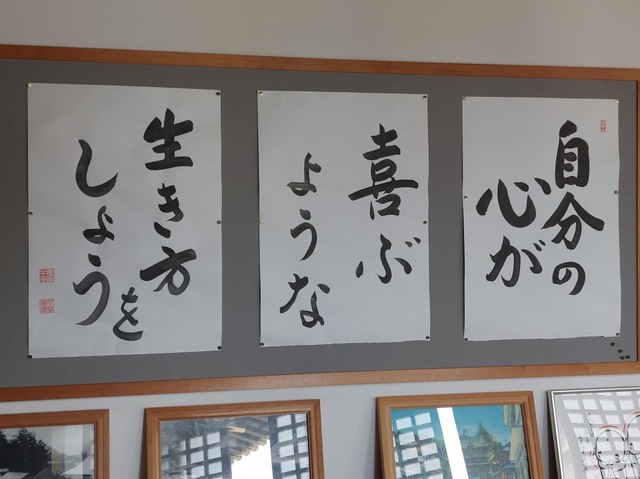 自分の
心が
喜ぶ
ような
生き方を
しょう